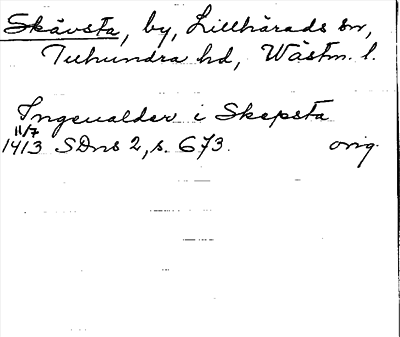 Skävsta, by, Lillhärads sn,
Tuhundra hd, Wästm. l.
Ingeualder i Skepsta
11/7
1413 SDns 2, s. 673. orig.